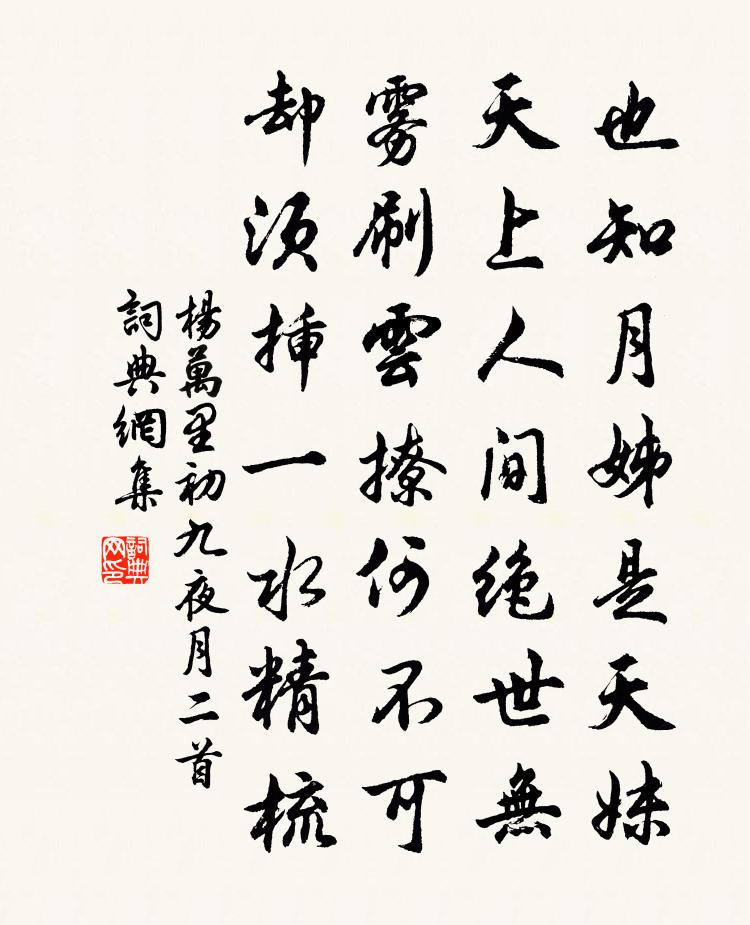 也知月姊是天妹
天上人间绝世無
雾刷雲撩何不可
却須揷一水精梳
楊萬里初九夜月二首
詞典網集
詞典网印